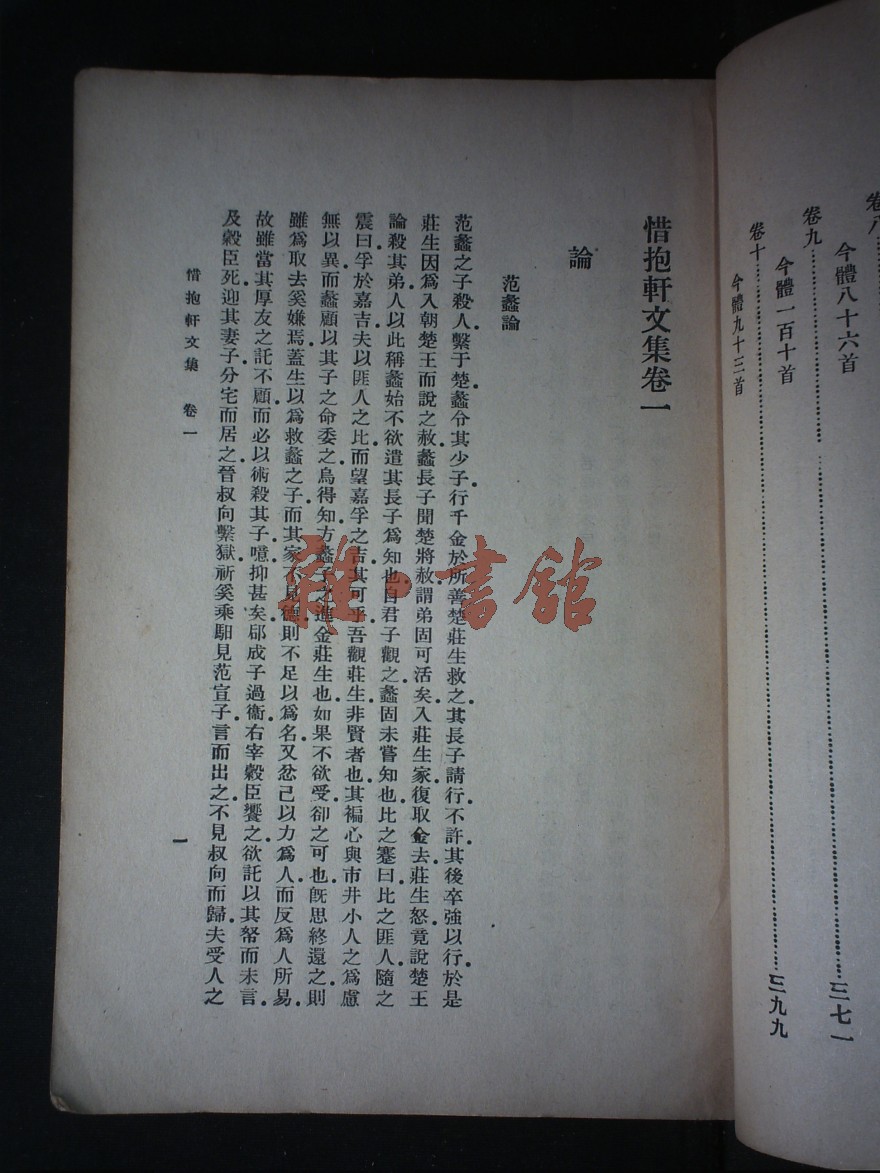 卷八
今體八十六首
卷九……三七一
今體一百十首
卷十……三九九
今體九十三首
惜抱軒文集卷一
論
范蠡論
范蠡之子殺人繫于楚蠡令其少子行千金於所善楚莊生救之其長子請行不許其後卒強以行於是
莊生因為入朝楚王而說之赦蠡長子聞楚將赦謂弟固可活矣入莊生家復取金去莊生怒竟說楚王
論殺其弟人以此稱蠡始不欲遣其長子為知也自君子觀之蠡固未嘗知也比之蹇曰比之匪人隨之
震曰孚於嘉吉夫以匪人之比而望嘉孚之吉其可乎吾觀莊生非賢者也其褊心與市井小人之為慮
無以異而蠡顧以其子之命委之烏得知方蠡子之進金莊生也如果不欲受卻之可也既思終還之則
雖為取去奚嫌焉蓋生以為救蠡之子而其家不見德則不足以為名又忿己以力為人而反為人所易
故雖當其厚友之託不顧而必以術殺其子噫抑甚矣郈成子過衞右宰穀臣饗之欲託以其帑而未言
及穀臣死迎其妻子分宅而居之晉叔向繫獄祈奚乘馹見范宣子言而出之不見叔向而歸夫受人之
惜抱軒文集 卷一
一
雜·書館